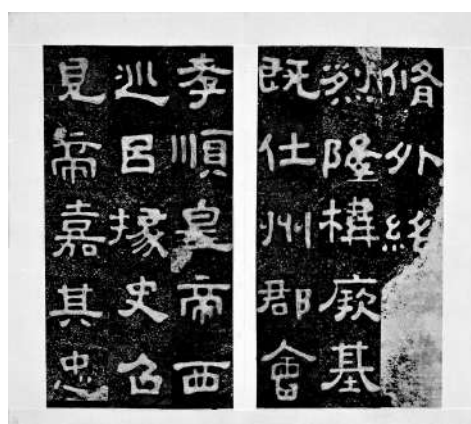 脩外
烈隆構厥基
既仕州郡會
孝順皇帝西
巡㠯掾史召
見帝嘉其忠